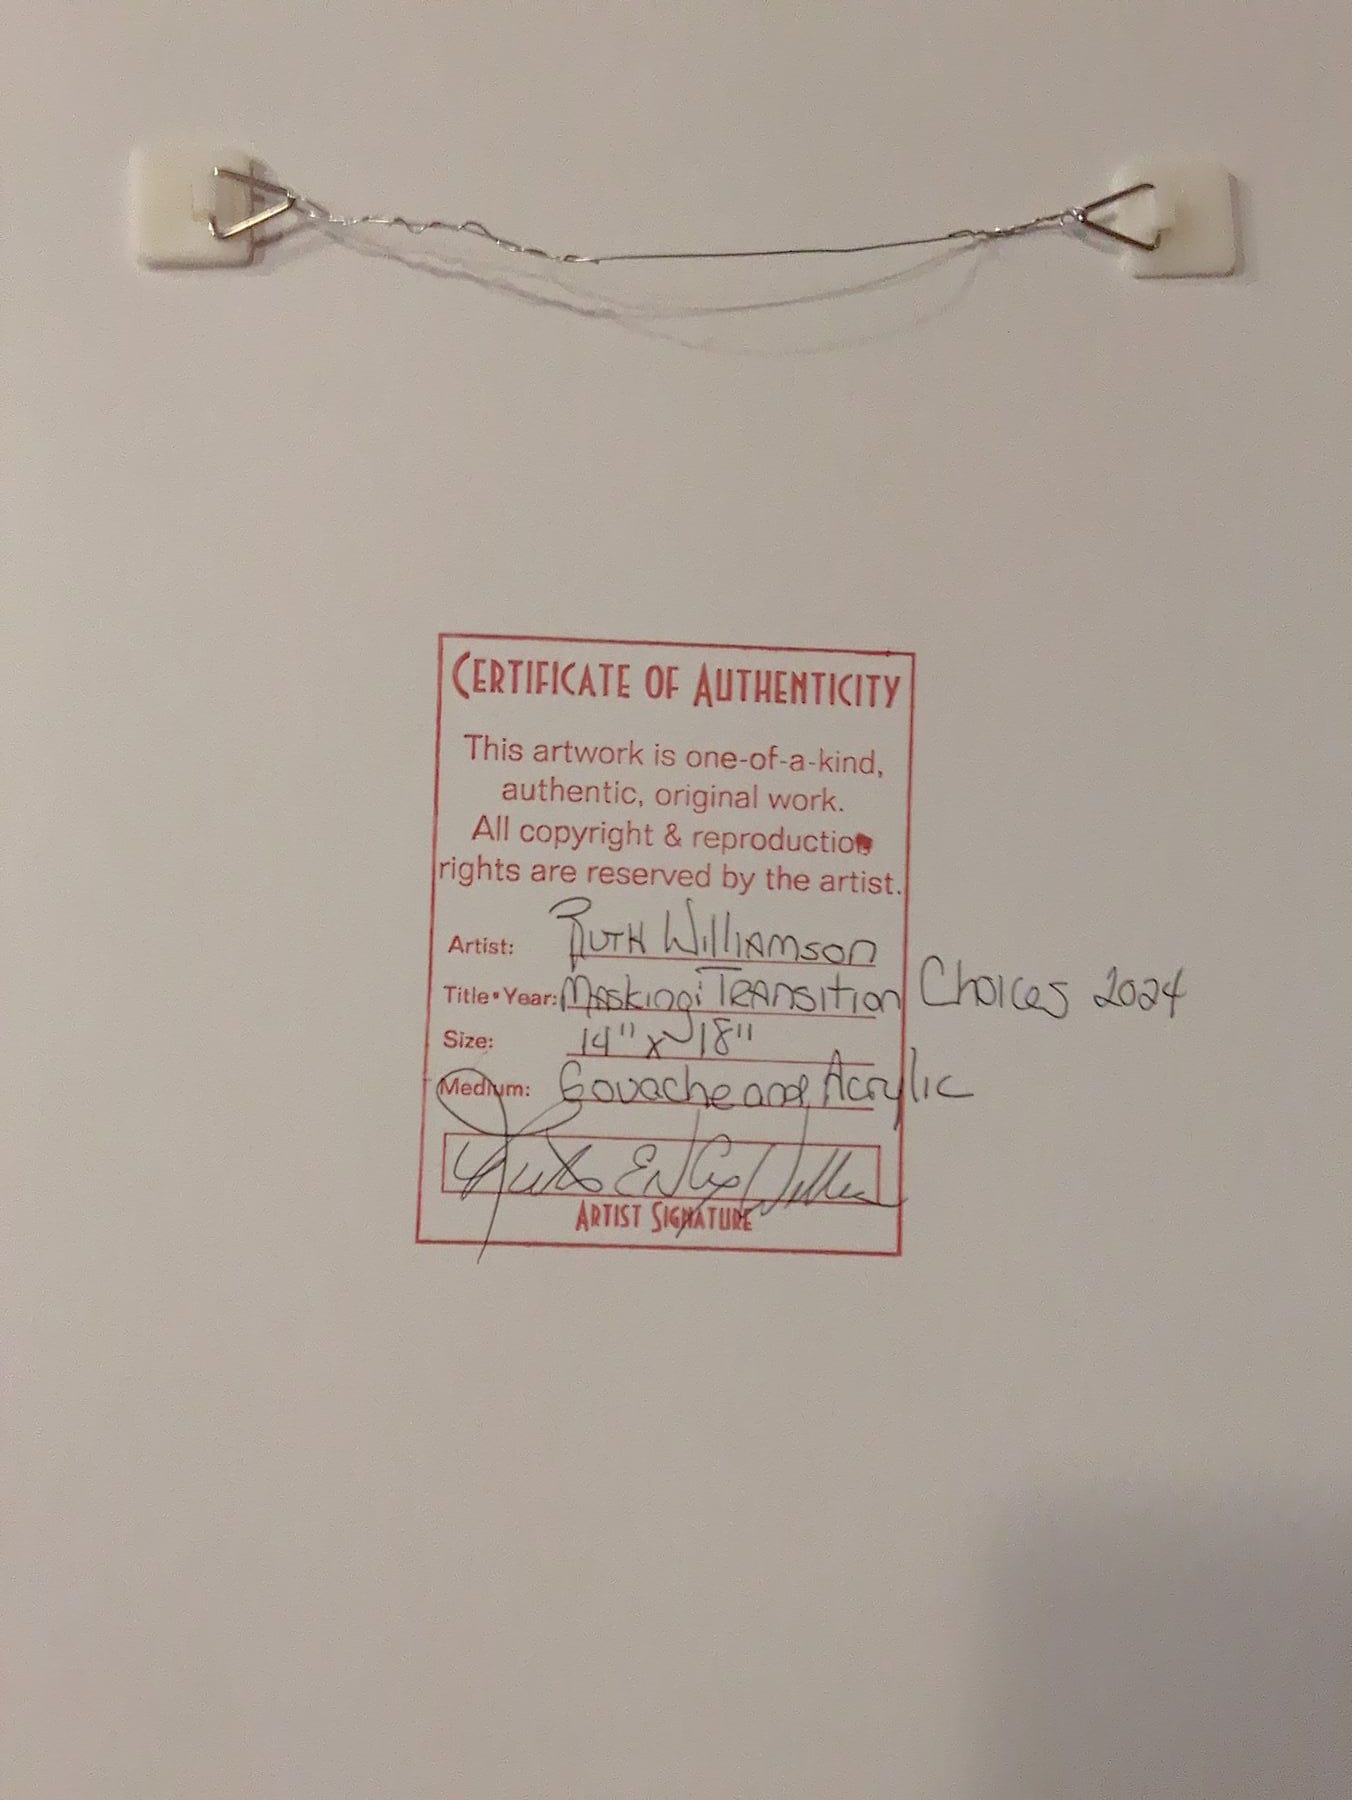 CERTIFICATE OF AUTHENTICITY
This artwork is one-of-a-kind,
authentic, original work.
All copyright & reproduction
rights are reserved by the artist.
Artist: Ruth Williamson
Title•Year: Masking: Transition Choices 2024
Size: 14" x 18"
Medium: Gouache and Acrylic
ARTIST SIGNATURE